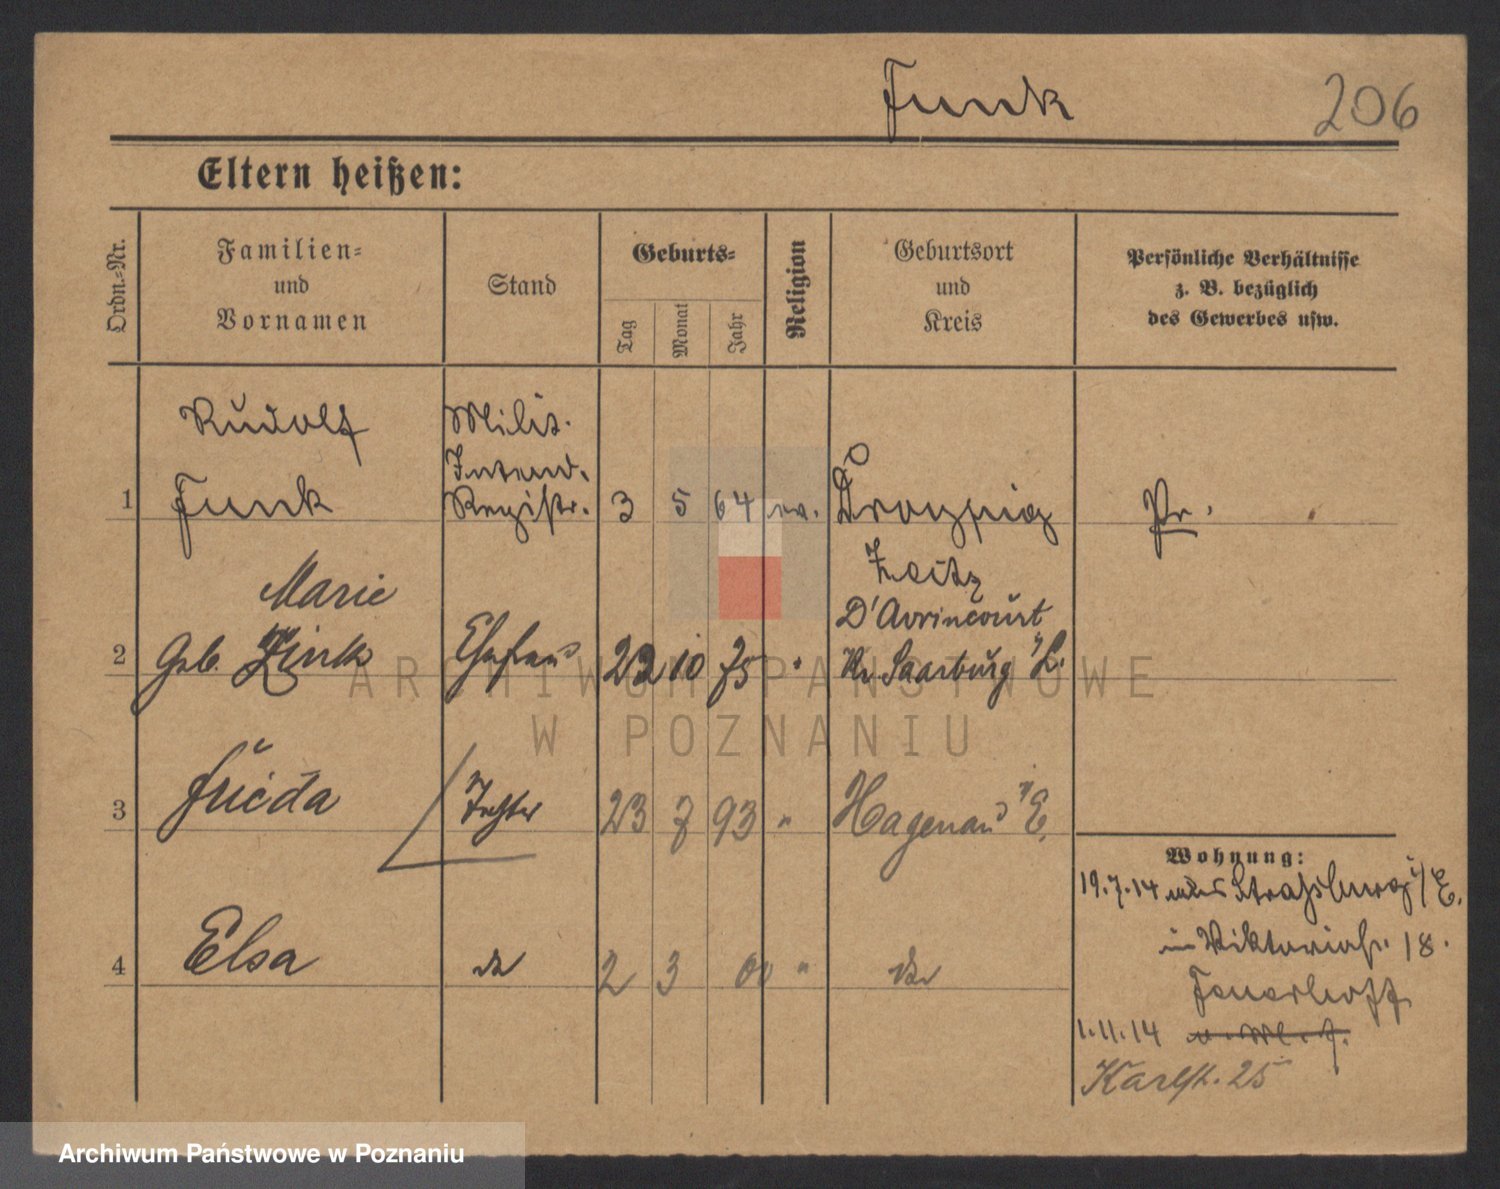 Funk 206
Eltern heißen:
Ordn.-Nr.
Familien=
und
Vornamen
Stand
Geburts=
Tag
Monat
Jahr
Religion
Geburtsort
und
Kreis
Persönliche Verhältnisse
z. B. bezüglich
des Gewerbes usw.
Rudolf
Funk
Milit.
Intend.
Registr.
1 3 5 64 ev. Droyßig
Zeitz
Pr.
Marie
2 Geb. Zink Ehefrau 22 10 75 "
D'Avrincourt
Kr. Saarburg i/L.
3 Frieda Tochter 23 7 93 " Hagenau i/E.
4 Elsa do 2 3 00 "
Wohnung:
19.7.14 aus Straßburg i/E.
in Viktoriastr. 18.
1.11.14
Karlstr. 25
ARCHIWUM PAŃSTWOWE
W POZNANIU
Archiwum Państwowe w Poznaniu